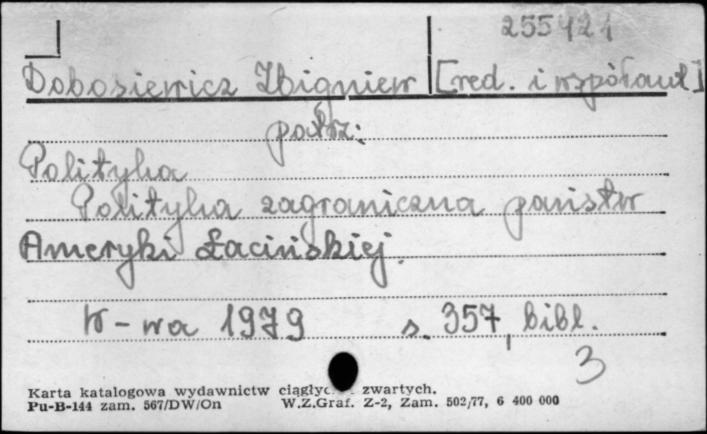 255421
Dobosiewicz Zbigniew [red. i współaut]
patrz:
Polityka
Polityka zagraniczna państw
Ameryki Łacińskiej.
W-wa 1979 s. 357, bibl.
3
Karta katalogowa wydawnictw zwartych.
Pu-B-144 zam. 567/DW/On W.Z.Graf. Z-2, Zam. 502/77, 6 400 000